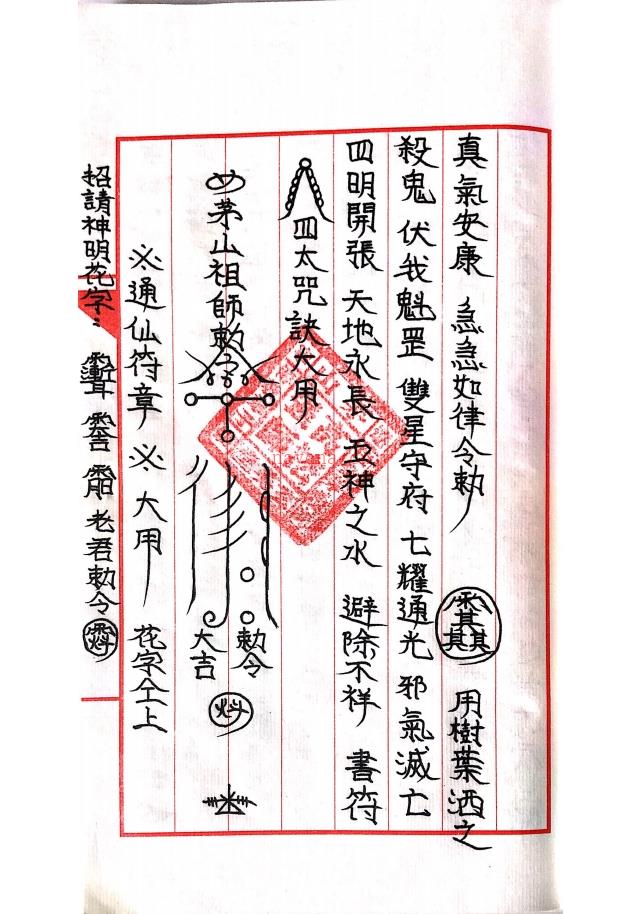 真氣安康 急急如律令勅 用樹葉洒之
殺鬼 伏我魁罡 雙星守府 七耀通光 邪氣滅亡
四明開張 天地永長 五神之水 避除不祥 書符
四太咒訣大用
茅山祖師勅 勅令 大吉
※通仙符章※大用 花字仝上
招請神明花字: 老君勅令